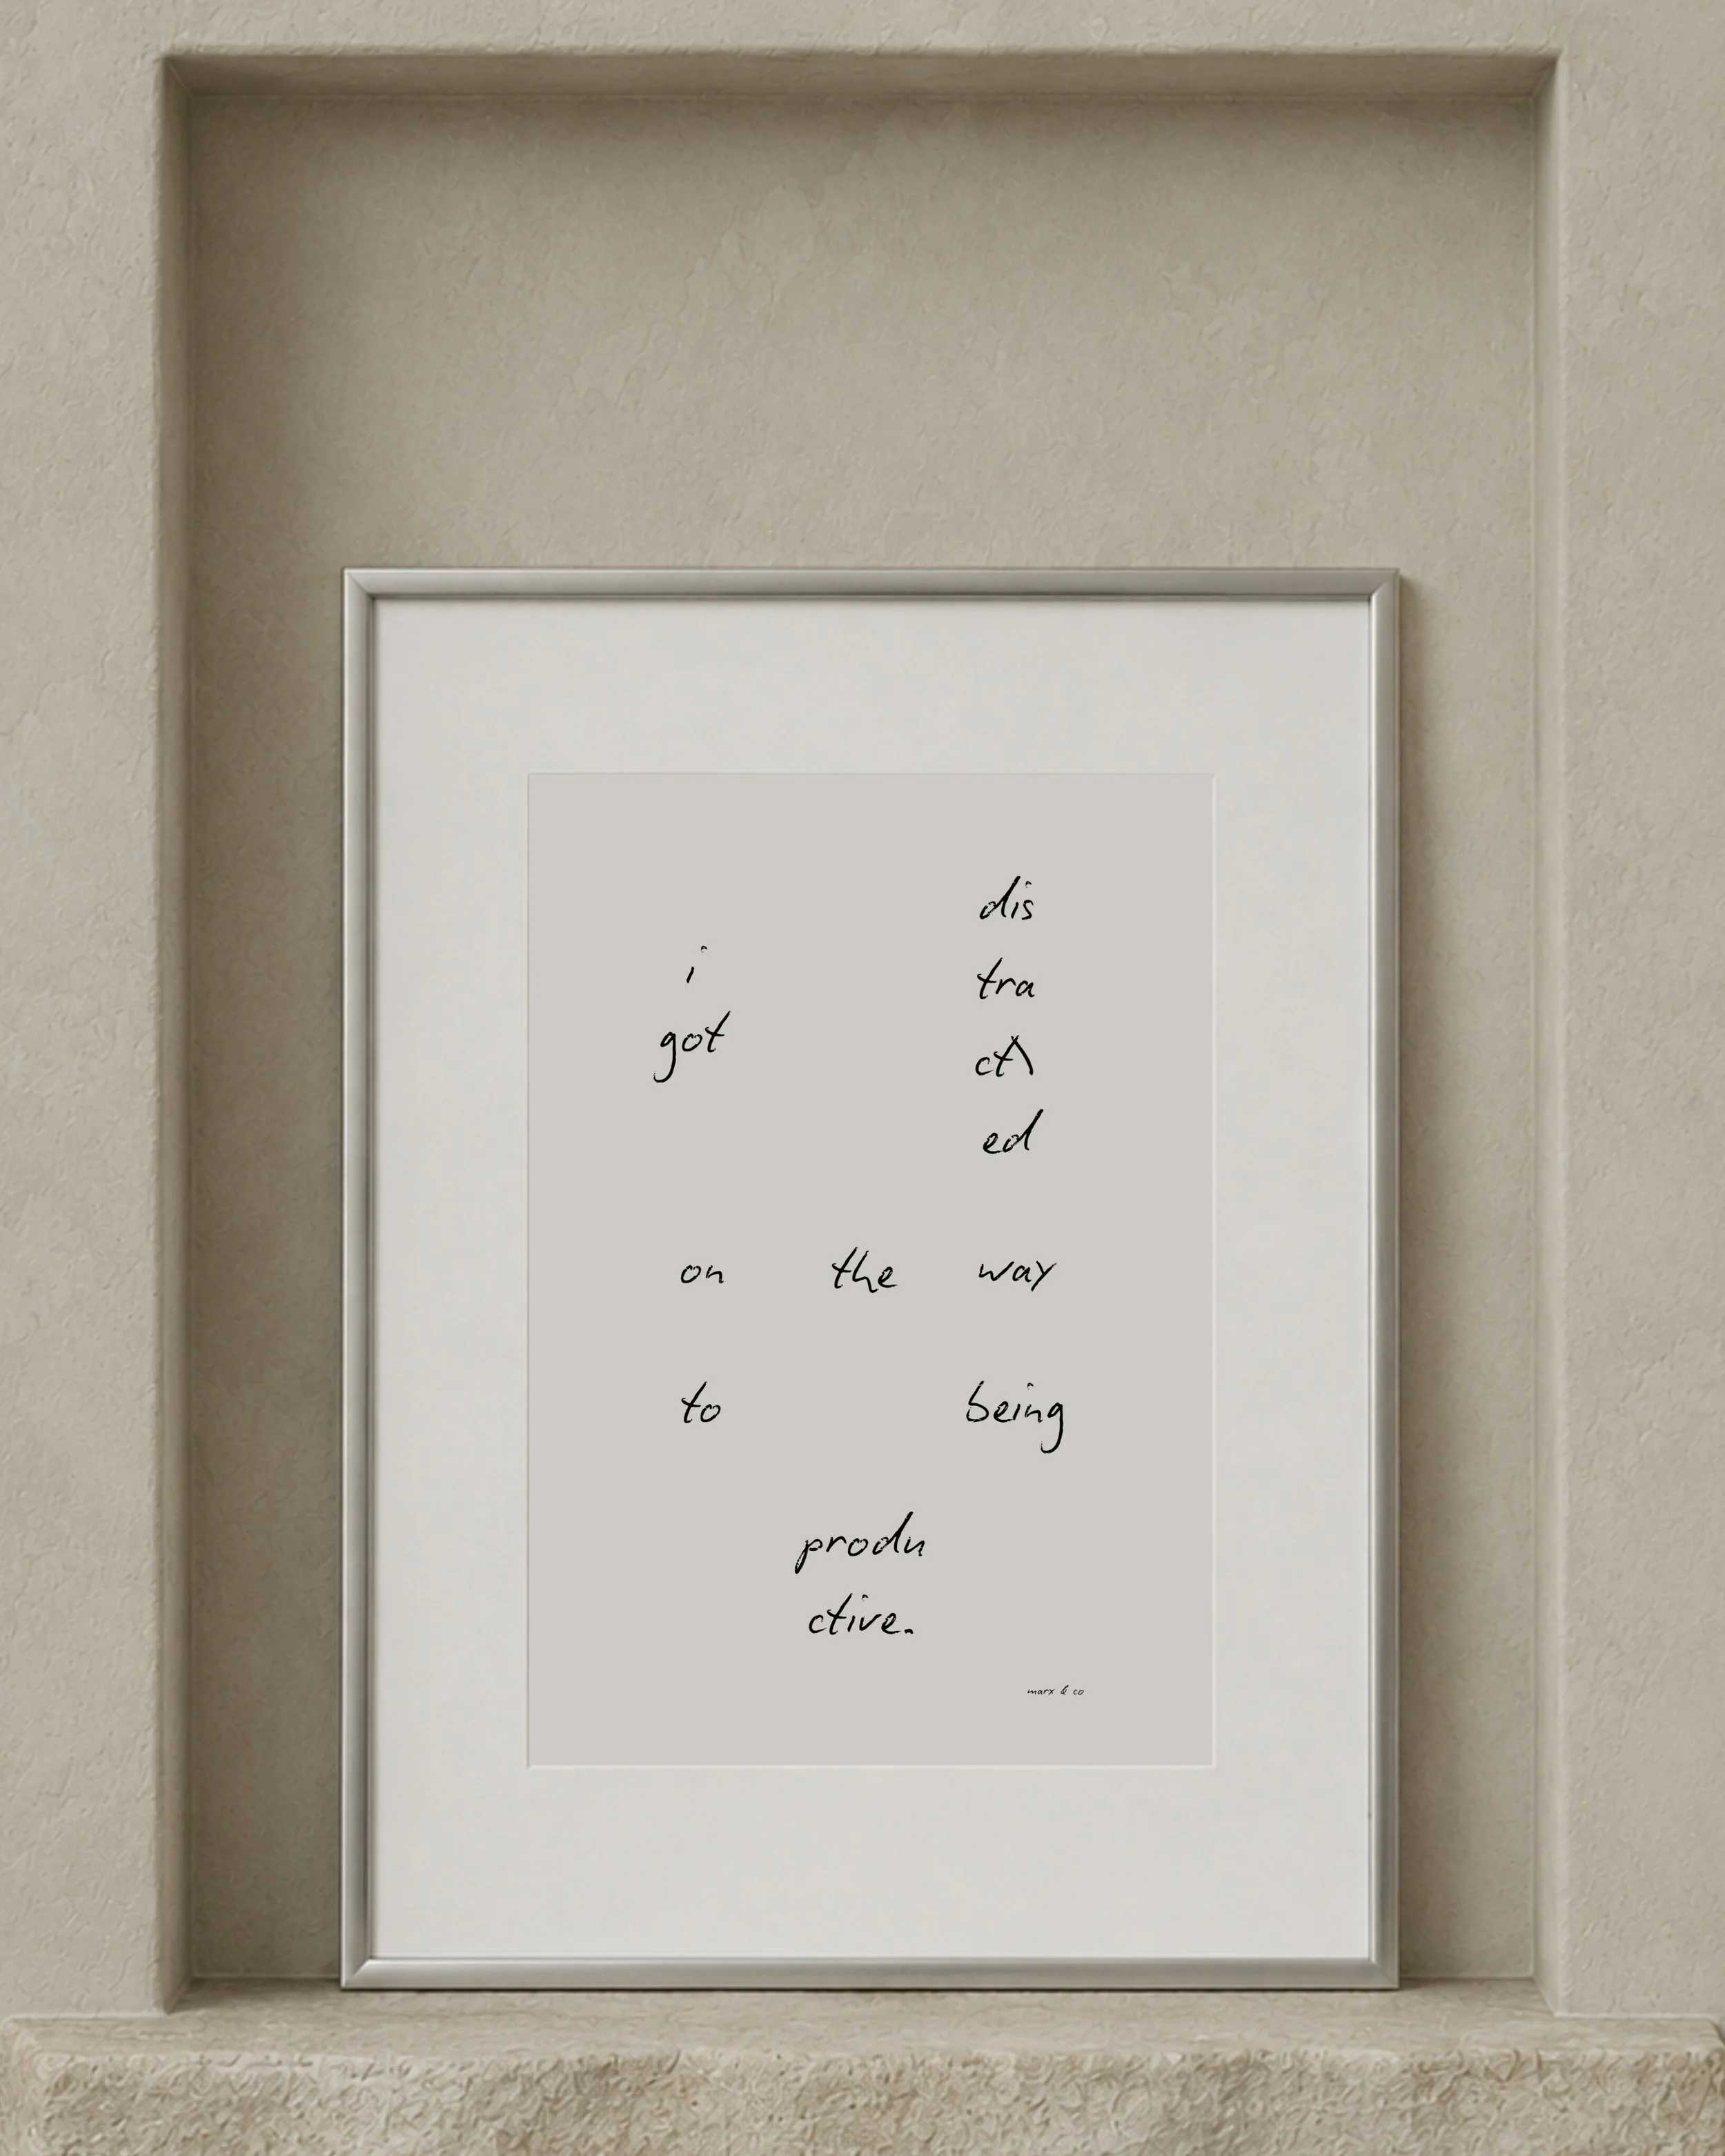 i
got
dis
tra
ct\
ed
on the way
to being
produ
ctive.
marx & co